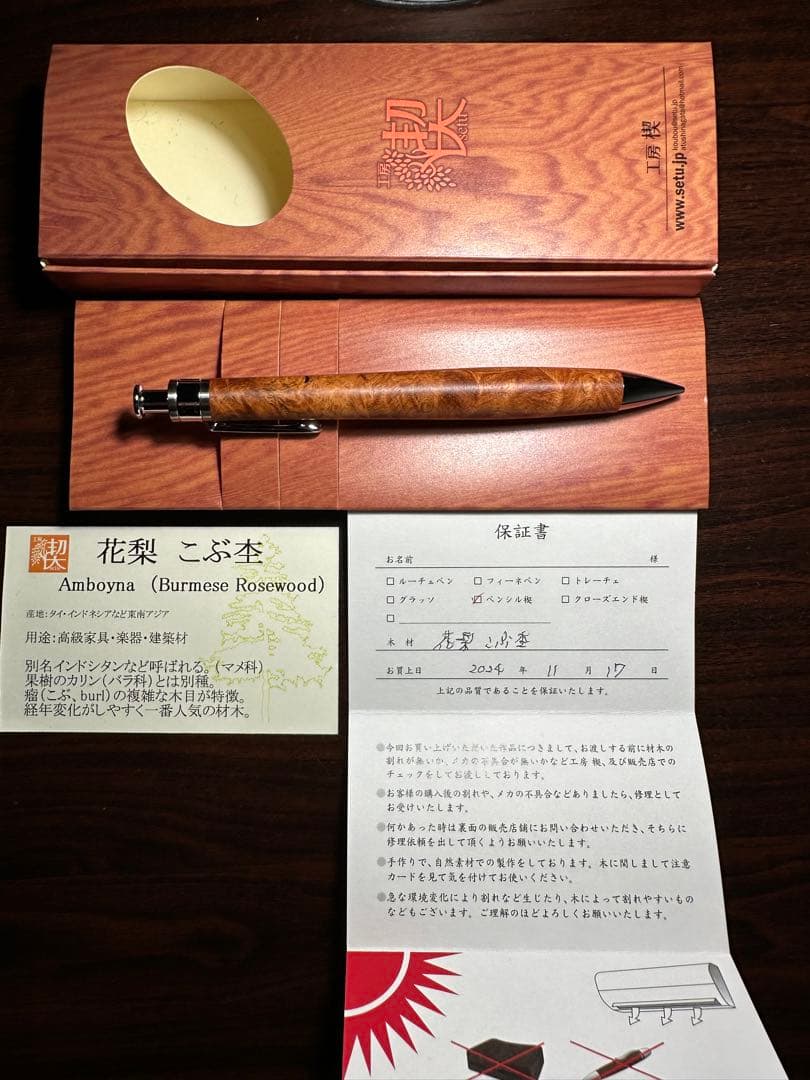 工房
楔
setu
工房 楔
www.setu.jp
koubou@setu.jp
工房
楔
setu
花梨 こぶ杢
Amboyna (Burmese Rosewood)
産地:タイ・インドネシアなど東南アジア
用途:高級家具・楽器・建築材
別名インドシタンなど呼ばれる。(マメ科)
果樹のカリン(バラ科)とは別種。
瘤(こぶ、burl)の複雑な木目が特徴。
経年変化がしやすく一番人気の材木。
保証書
お名前 様
□ルーチェペン □フィーネペン □トレーチェ
□グラッソ ☑ペンシル楔 □クローズエンド楔
□
木 材 花梨 こぶ杢
お買上日 2024 年 11 月 17 日
上記の品質であることを保証いたします。
●今回お買い上げいただいた作品につきまして、お渡しする前に材木の
割れが無いか、メカの不具合が無いかなど工房 楔、及び販売店での
チェックをしてお渡ししております。
●お客様の購入後の割れや、メカの不具合などありましたら、修理として
お受けいたします。
●何かあった時は裏面の販売店舗にお問い合わせいただき、そちらに
修理依頼を出して頂くようお願いいたします。
●手作りで、自然素材での製作をしております。木に関しまして注意
カードを見て気を付けてお使いください。
●急な環境変化により割れなど生じたり、木によって割れやすいもの
などもございます。ご理解のほどよろしくお願いいたします。